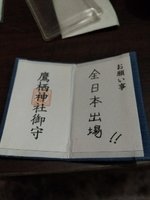 お願い事
全日本出場!!
鷹栖神社御守